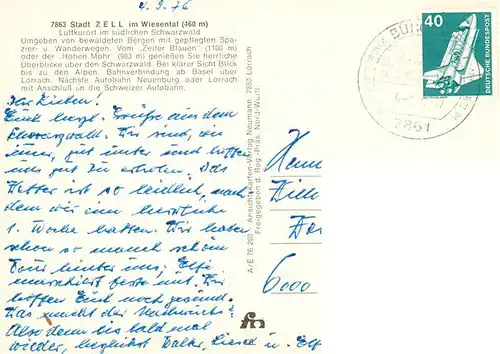 2.9.76
7863 Stadt ZELL im Wiesental (460 m)
Luftkurort im südlichen Schwarzwald
Umgeben von bewaldeten Bergen mit gepflegten Spa-
zier- u. Wanderwegen. Vom „Zeller Blauen" (1100 m)
oder der „Hohen Möhr" (983 m) genießen Sie herrliche
Überblicke über den Schwarzwald. Bei klarer Sicht Blick
bis zu den Alpen. Bahnverbindung ab Basel über
Lörrach. Nächste Autobahn Neuenburg oder Lörrach
mit Anschluß an die Schweizer Autobahn.
Ihr Lieben!
Euch herzl. Grüße aus dem
Schwarzwald. Wir sind, wie
immer, gut unter und hoffen
uns gut zu erholen. Das
Wetter ist so leidlich, nach
dem wir eine herrliche
1. Woche hatten. Wir haben
schon so manch schöne
Tour hinter uns, Elfi
marschiert feste mit. Wir
hoffen Euch noch gesund.
Was macht der Nachwuchs?
Also denn bis bald mal
wieder, Walter, Liesel u. Elfi
A/E 76 260 Ansichtskarten-Verlag Neumann, 7850 Lörrach
Freigegeben d. Reg.-Präs. Nord-Württ.
40
DEUTSCHE BUNDESPOST
7861
6000